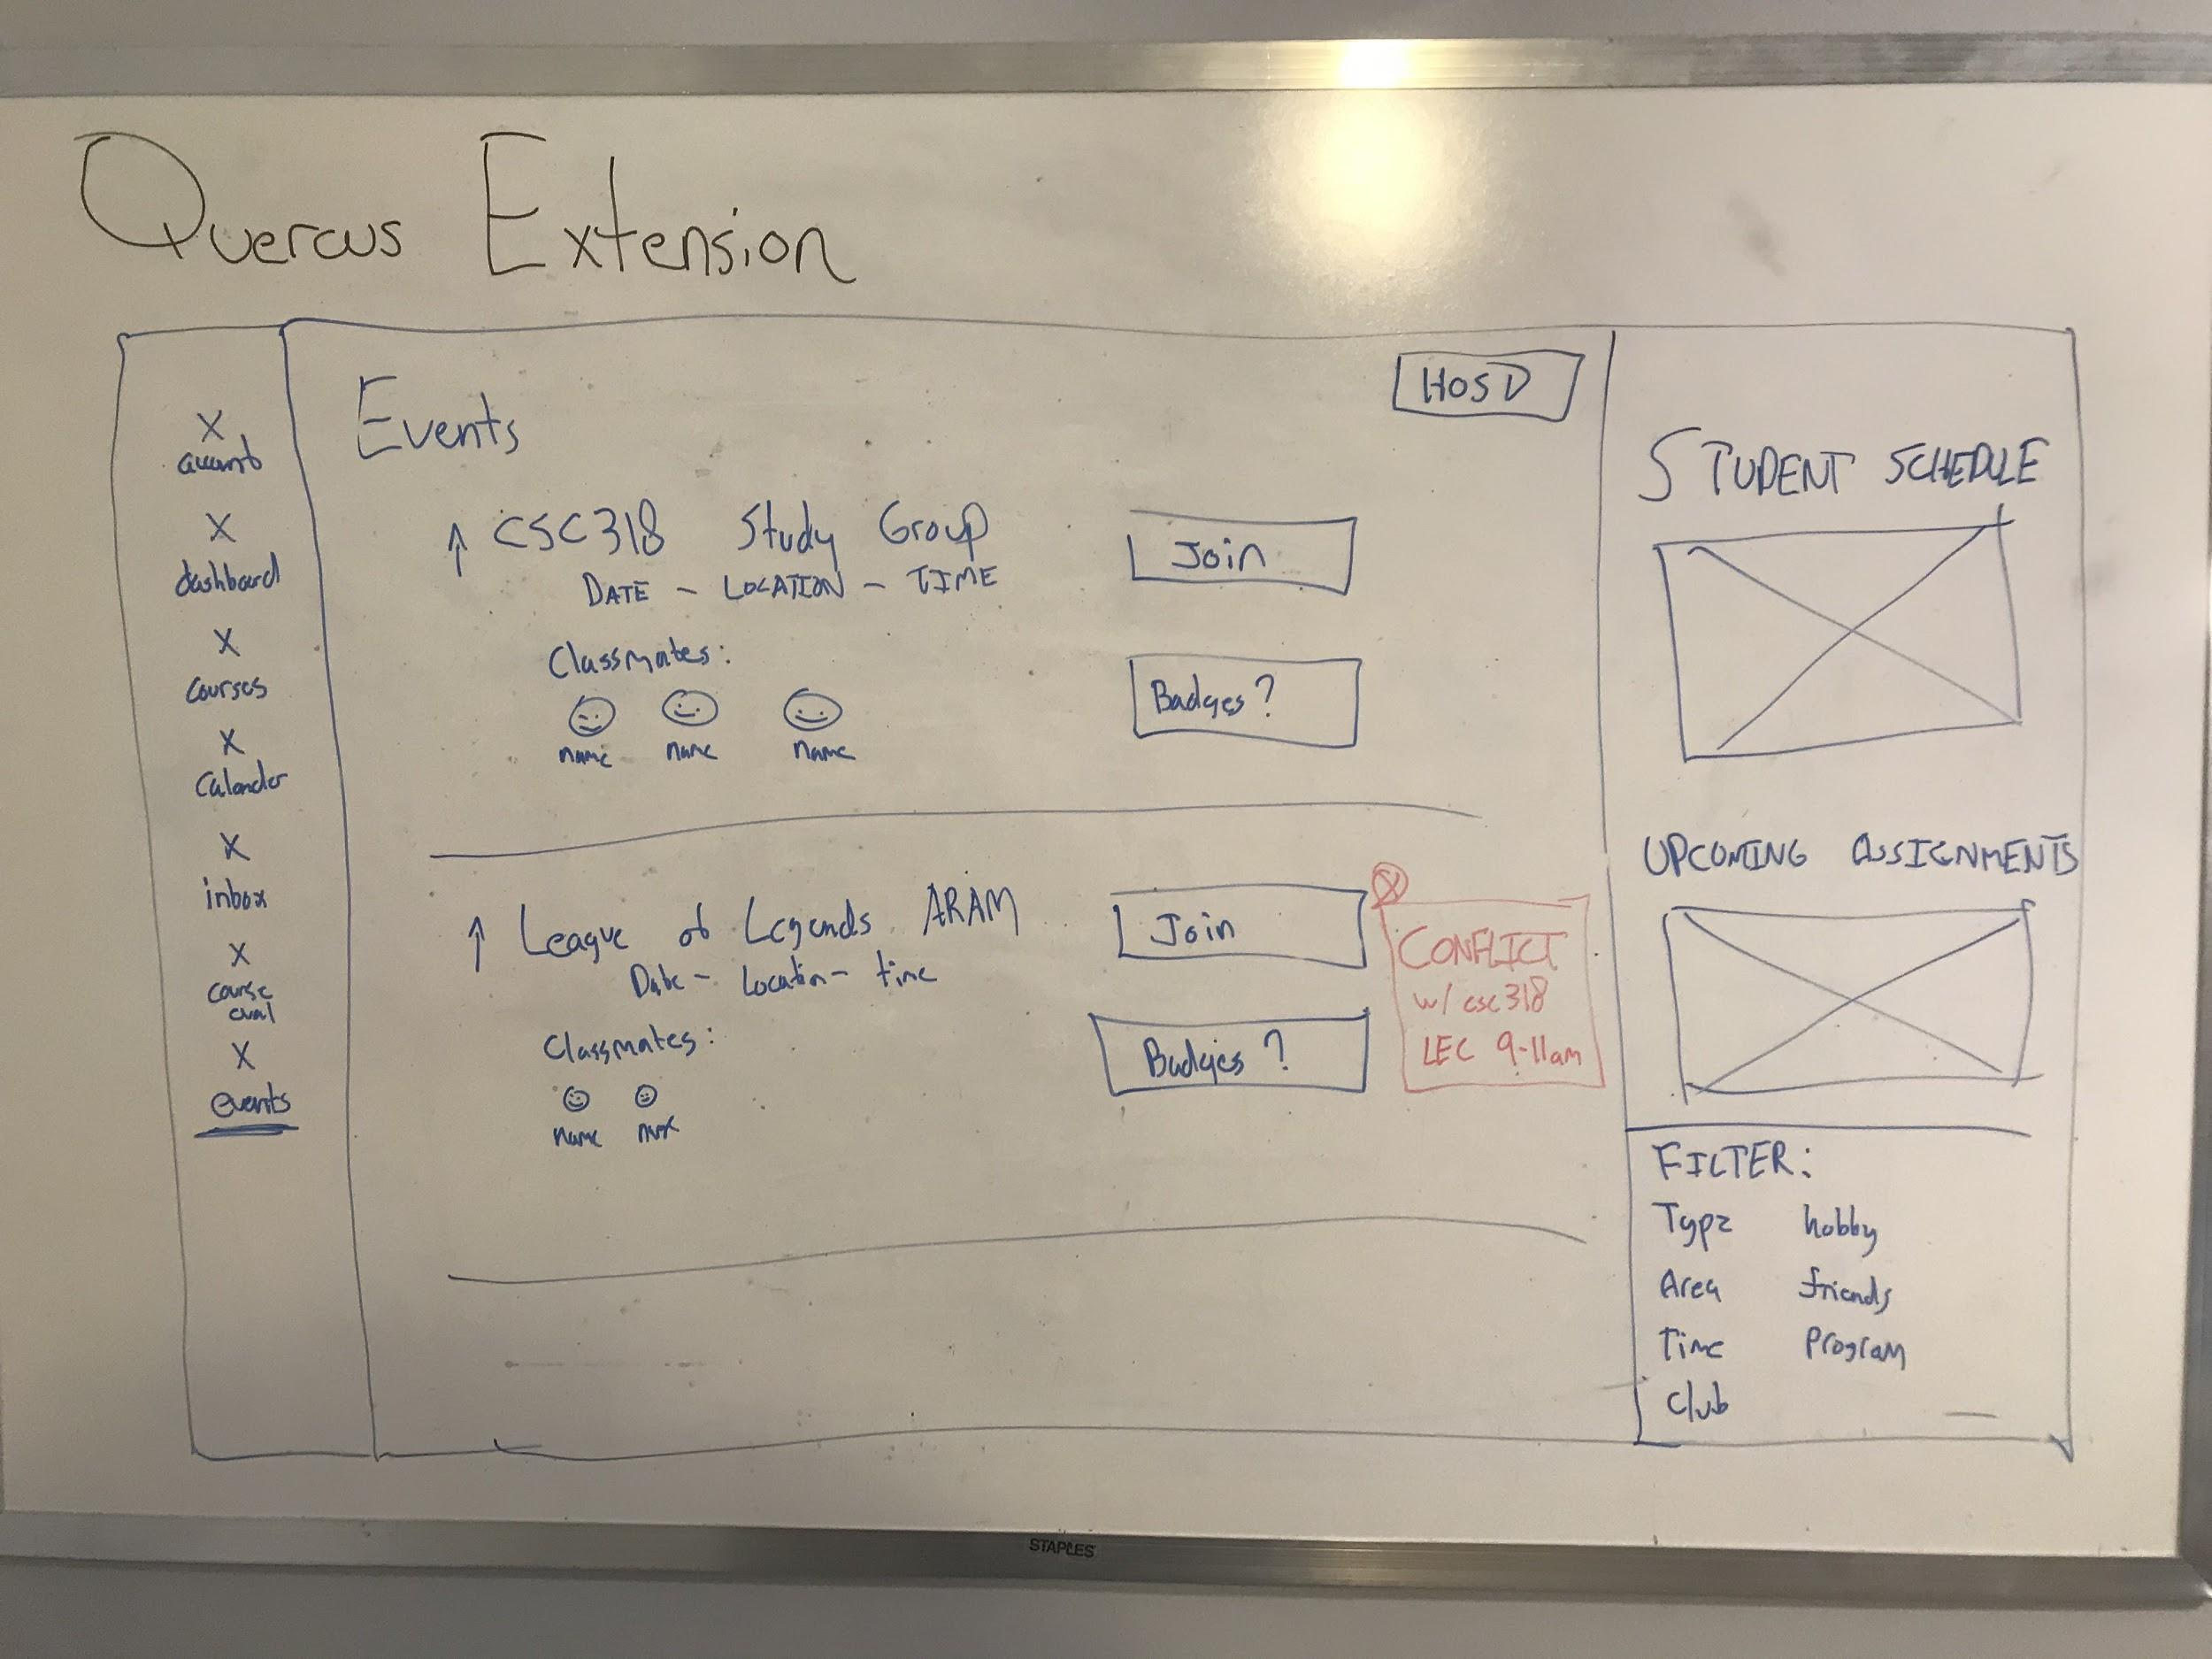 Quercus Extension
x
account
x
dashboard
x
courses
x
Calander
x
inbox
x
course
eval
x
events
Events
↑ CSC318 Study Group
DATE - LOCATION - TIME
Classmates:
name name name
Join
Badges?
↑ League of Legends ARAM
Date - Location - time
Classmates:
name name
Join
Badges?
CONFLICT
w/ csc318
LEC 9-11am
STUDENT SCHEDULE
UPCOMING ASSIGNMENTS
FILTER:
Type hobby
Area friends
Time Program
Club
STAPLES